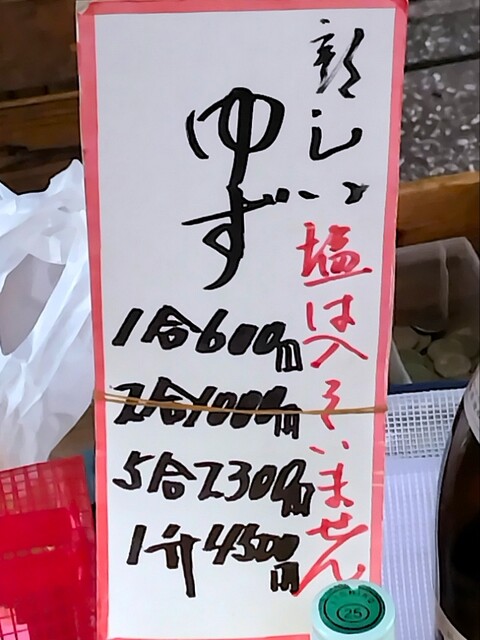 新しい
塩は入っていません
ゆず
1合600円
2合1000円
5合2300円
1升4500円
25